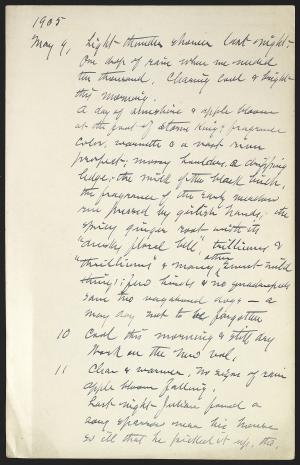 1905
May 9, Light thunder shower last night -
One drop of rain when we needed
ten thousand. Clearing cool & bright
this morning.
A day of sunshine & apple bloom
at the foot of Storm King; fragrance
color, warmth & a vast river
prospect, mossy boulders, a dripping
ledge, the wild of the black birch,
the fragrance of the early meadow
rue pressed by girlish hands, the
spicy ginger root with its
"dusky floral bell" trilliums &
"thrilliums" & many other sweet wild
things; few birds & no quadrupeds
save two vagabond dogs — a
may day not to be forgotten
10 Cool this morning & still dry
Work on the new vol,
11 Clear & warmer, No signs of rain
apple bloom falling,
Last night Julian found a
song sparrow near his house
so ill that he picked it up, tho,